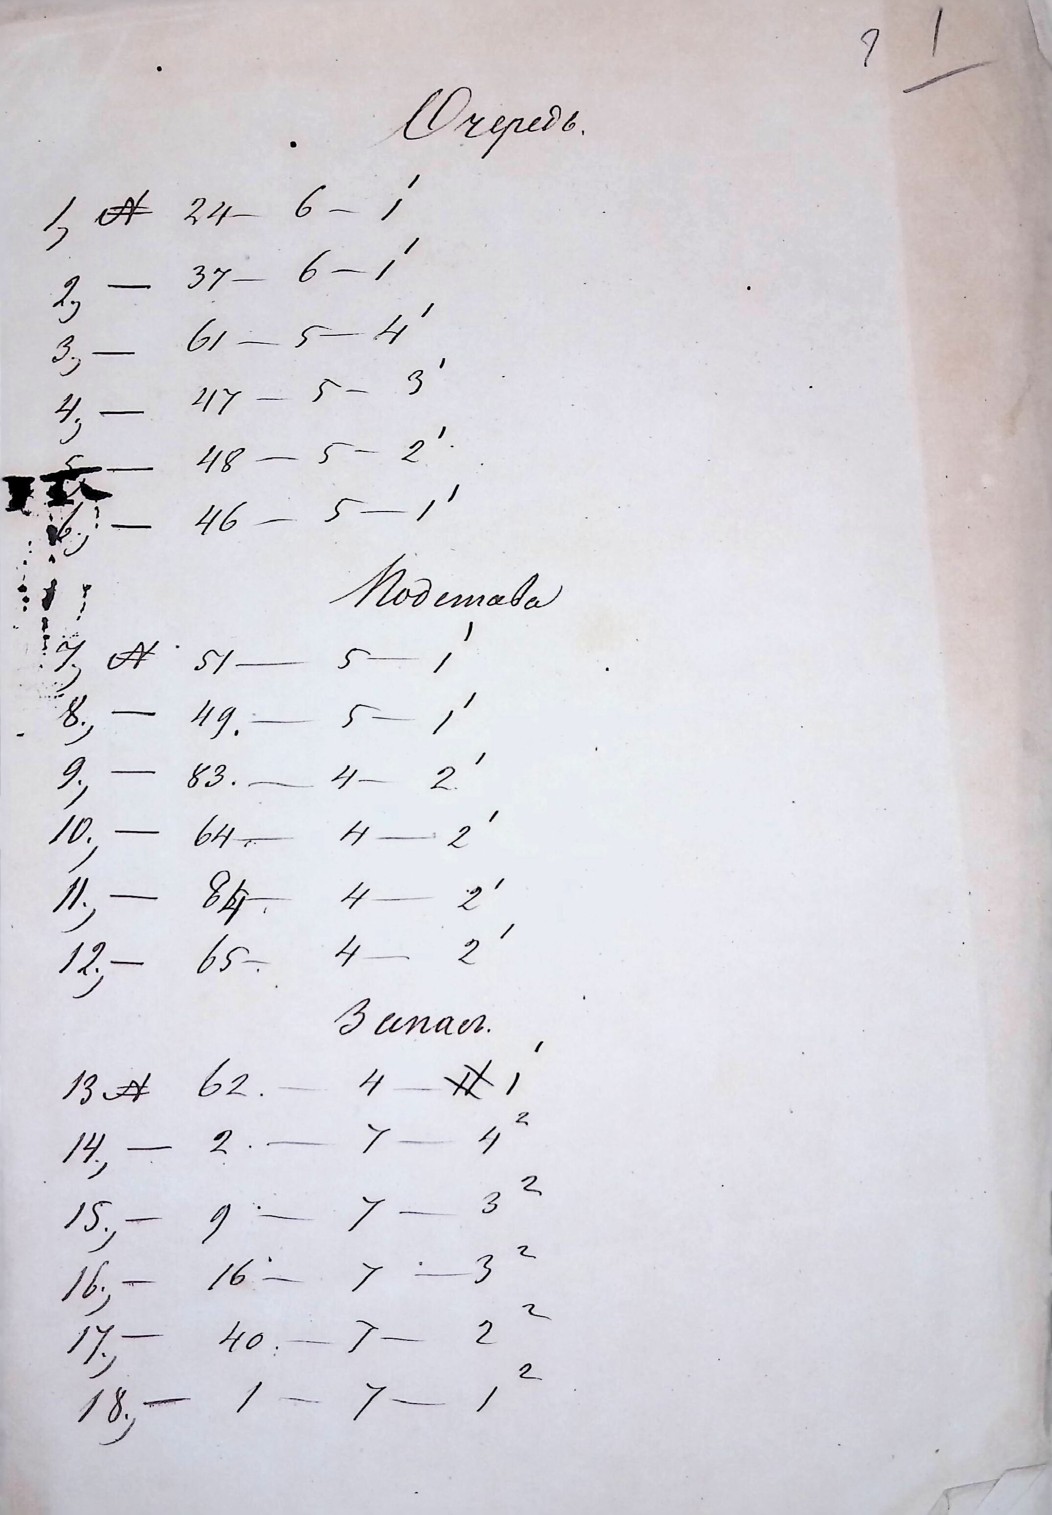 1
Очередь.
1, № 24 — 6 — 1'
2, — 37 — 6 — 1'
3, — 61 — 5 — 4'
4, — 47 — 5 — 3'
5, — 48 — 5 — 2'
6, — 46 — 5 — 1'
Подстава
7, № 51 — 5 — 1'
8, — 49. — 5 — 1'
9, — 83. — 4 — 2'
10, — 64 — 4 — 2'
11, — 84. 4 — 2'
12, — 65 — 4 — 2'
Запас.
13 № 62. — 4 — 1'
14, — 2. — 7 — 4²
15, — 9 — 7 — 3²
16, — 16 — 7 — 3²
17, — 40. — 7 — 2²
18, — 1 — 7 — 1²